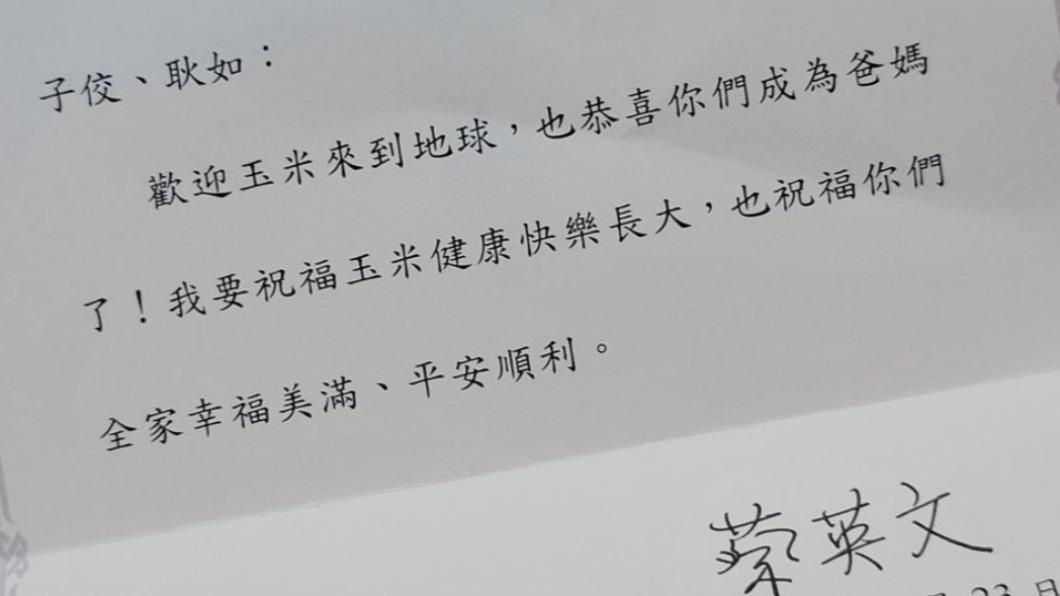 子佼、耿如：
歡迎玉米來到地球，也恭喜你們成為爸媽
了！我要祝福玉米健康快樂長大，也祝福你們
全家幸福美滿、平安順利。
蔡英文
月 23 日